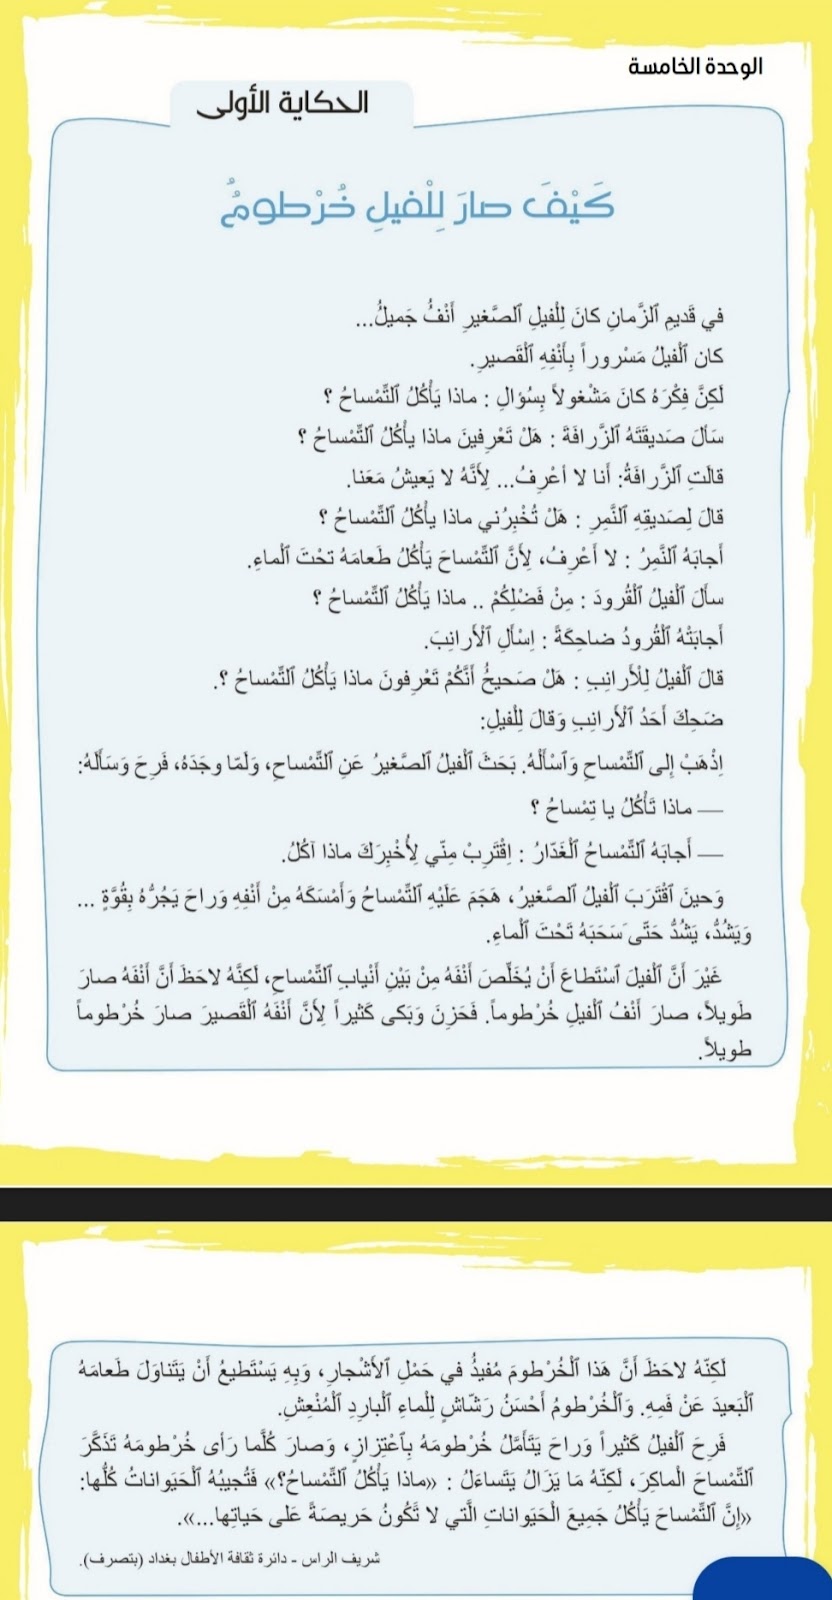 الوحدة الخامسة
الحكاية الأولى
كَيْفَ صارَ لِلْفيلِ خُرْطومٌ
في قَديمِ ٱلزَّمانِ كانَ لِلْفيلِ ٱلصَّغيرِ أَنْفٌ جَميلٌ...
كان ٱلْفيلُ مَسْروراً بِأَنْفِهِ ٱلْقَصيرِ.
لَكِنَّ فِكْرَهُ كانَ مَشْغولاً بِسُؤالِ : ماذا يَأْكُلُ ٱلتِّمْساحُ ؟
سَأَلَ صَديقَتَهُ ٱلزَّرافَةَ : هَلْ تَعْرِفينَ ماذا يأْكُلُ ٱلتِّمْساحُ ؟
قالَتِ ٱلزَّرافَةُ: أَنا لا أَعْرِفُ... لِأَنَّهُ لا يَعيشُ مَعَنا.
قالَ لِصَديقِهِ ٱلنَّمِرِ : هَلْ تُخْبِرُني ماذا يأْكُلُ ٱلتِّمْساحُ ؟
أَجابَهُ ٱلنَّمِرُ : لا أَعْرِفُ، لِأَنَّ ٱلتِّمْساحَ يَأْكُلُ طَعامَهُ تحْتَ ٱلْماءِ.
سأَلَ ٱلْفيلُ ٱلْقُرودَ : مِنْ فَضْلِكُمْ .. ماذا يَأْكُلُ ٱلتِّمْساحُ ؟
أَجابَتْهُ ٱلْقُرودُ ضاحِكَةً : اِسْأَلِ ٱلْأَرانِبَ.
قالَ ٱلْفيلُ لِلْأَرانِبِ : هَلْ صَحيحٌ أَنَّكُمْ تَعْرِفونَ ماذا يَأْكُلُ ٱلتِّمْساحُ ؟.
ضَحِكَ أَحَدُ ٱلْأَرانِبِ وَقالَ لِلْفيلِ:
اِذْهَبْ إِلى ٱلتِّمْساحِ وَٱسْأَلْهُ. بَحَثَ ٱلْفيلُ ٱلصَّغيرُ عَنِ ٱلتِّمْساحِ، وَلَمّا وجَدَهُ، فَرِحَ وَسَأَلَهُ:
— ماذا تَأْكُلُ يا تِمْساحُ ؟
— أَجابَهُ ٱلتِّمْساحُ ٱلْغَدّارُ : اِقْتَرِبْ مِنّي لِأُخْبِرَكَ ماذا آكُلُ.
وَحينَ ٱقْتَرَبَ ٱلْفيلُ ٱلصَّغيرُ، هَجَمَ عَلَيْهِ ٱلتِّمْساحُ وَأَمْسَكَهُ مِنْ أَنْفِهِ وَراحَ يَجُرُّهُ بِقُوَّةٍ ...
وَيَشُدُّ، يَشُدُّ حَتّى سَحَبَهُ تَحْتَ ٱلْماءِ.
غَيْرَ أَنَّ ٱلْفيلَ ٱسْتَطاعَ أَنْ يُخَلِّصَ أَنْفَهُ مِنْ بَيْنِ أَنْيابِ ٱلتِّمْساحِ، لَكِنَّهُ لاحَظَ أَنَّ أَنْفَهُ صارَ
طَويلاً، صارَ أَنْفُ ٱلْفيلِ خُرْطوماً. فَحَزِنَ وَبَكى كَثيراً لِأَنَّ أَنْفَهُ ٱلْقَصيرَ صارَ خُرْطوماً
طويلاً.
لَكِنّهُ لاحَظَ أَنَّ هَذا ٱلْخُرْطومَ مُفيدٌ في حَمْلِ الأَشْجارِ، وَبِهِ يَسْتَطيعُ أَنْ يَتَناوَلَ طَعامَهُ
ٱلْبَعيدَ عَنْ فَمِهِ. وَٱلْخُرْطومُ أَحْسَنُ رَشّاشٍ لِلْماءِ ٱلْبارِدِ ٱلْمُنْعِشِ.
فَرِحَ ٱلْفيلُ كَثيراً وَراحَ يَتَأَمَّلُ خُرْطومَهُ بِٱعْتِزازٍ، وَصارَ كُلَّما رَأى خُرْطومَهُ تَذَكَّرَ
ٱلتِّمْساحَ ٱلْماكِرَ، لَكِنَّهُ ما يَزالُ يَتَساءَلُ : «ماذا يَأْكُلُ ٱلتِّمْساحُ؟» فَتُجيبُهُ ٱلْحَيَواناتُ كُلُّها:
«إِنَّ ٱلتِّمْساحَ يَأْكُلُ جَميعَ ٱلْحَيَواناتِ ٱلَّتي لا تَكُونُ حَريصَةً عَلى حَياتِها...».
شريف الراس - دائرة ثقافة الأطفال بغداد (بتصرف).